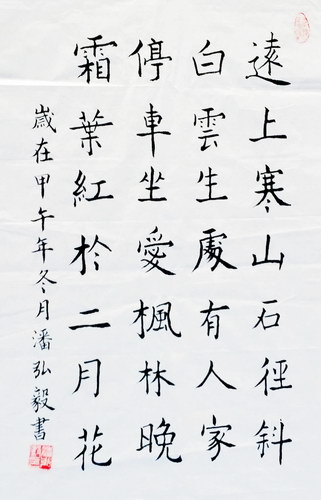 遠上寒山石徑斜
白雲生處有人家
停車坐愛楓林晚
霜葉紅於二月花
歲在甲午年冬月潘弘毅書